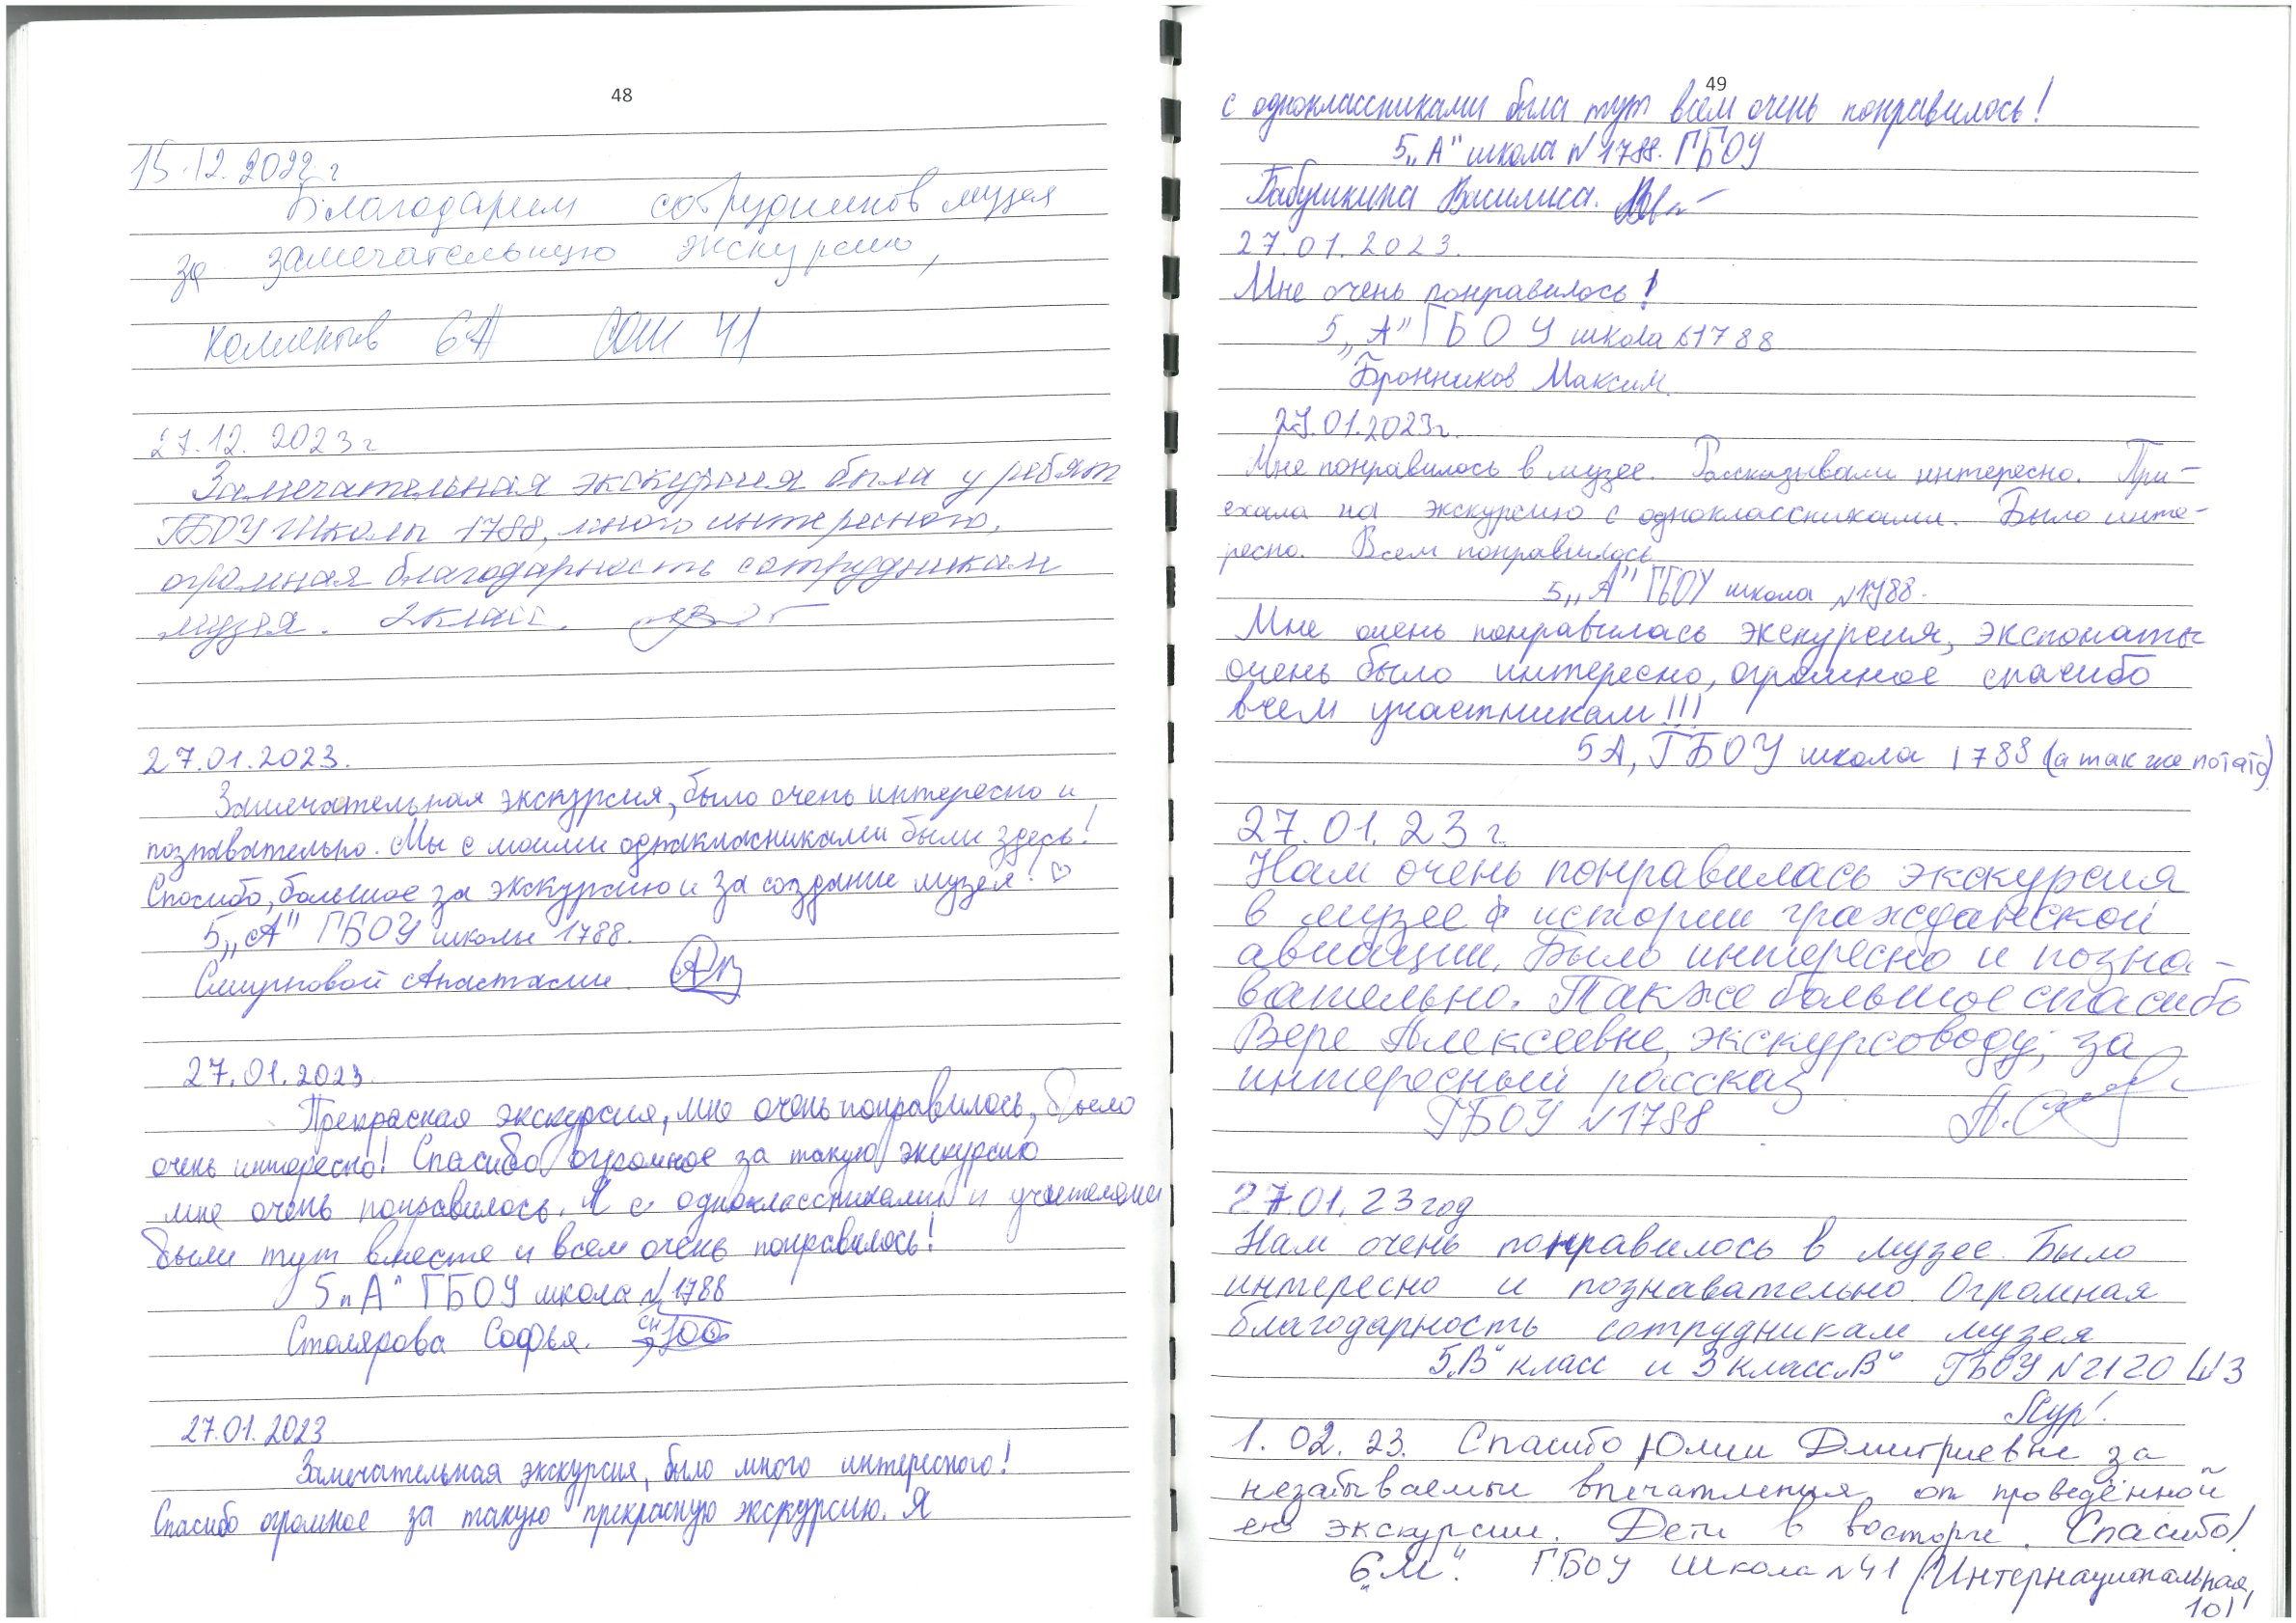 48
15.12.2022 г
Благодарим сотрудников музея
за замечательную экскурсию,
коллектив 6А СОШ 41
27.12.2023 г
Замечательная экскурсия была у ребят
ГБОУ Школы 1788, много интересного,
огромная благодарность сотрудникам
музея. 2 класс.
27.01.2023.
Замечательная экскурсия, было очень интересно и
познавательно. Мы с моими однакласниками были здесь!
Спасибо, большое за экскурсию и за создание музея! ♡
5„А" ГБОУ школы 1788.
Смирновой Анастасии.
27.01.2023
Прекрасная экскурсия, мне очень понравилось, было
очень интересно! Спасибо огромное за такую экскурсию
мне очень понравилось. Я с одноклассниками и учителями
были тут вместе и всем очень понравилось!
5„А" ГБОУ школа №1788
Столярова Софья.
27.01.2023
Замечательная экскурсия, было много интересного!
Спасибо огромное за такую прекрасную экскурсию. Я
49
с одноклассниками была тут всем очень понравилось!
5„А" школа №1788. ГБОУ
Бабушкина Василиса.
27.01.2023.
Мне очень понравилось!
5„А" ГБОУ школа №1788
Бронников Максим.
27.01.2023г.
Мне понравилось в музее. Рассказывали интересно. При-
ехала на экскурсию с одноклассниками. Было инте-
ресно. Всем понравилось
5„А" ГБОУ школа №1788.
Мне очень понравилась экскурсия, экспонаты
очень было интересно, огромное спасибо
всем участникам!!!
5А, ГБОУ школа 1788 (а так же потато)
27.01.23 г.
Нам очень понравилась экскурсия
в музее истории гражданской
авиации. Было интересно и позна-
вательно. Также большое спасибо
Вере Алексеевне, экскурсоводу, за
интересный рассказ
ГБОУ №1788
27.01.23 год
Нам очень понравилось в музее. Было
интересно и познавательно. Огромная
благодарность сотрудникам музея
5„В" класс и 3 класс„В" ГБОУ №2120 Ш3
1.02.23. Спасибо Юлии Дмитриевне за
незабываемые впечатления от проведённой
ею экскурсии. Дети в восторге. Спасибо!
6„М". ГБОУ Школа №41 (Интернациональная,
10)